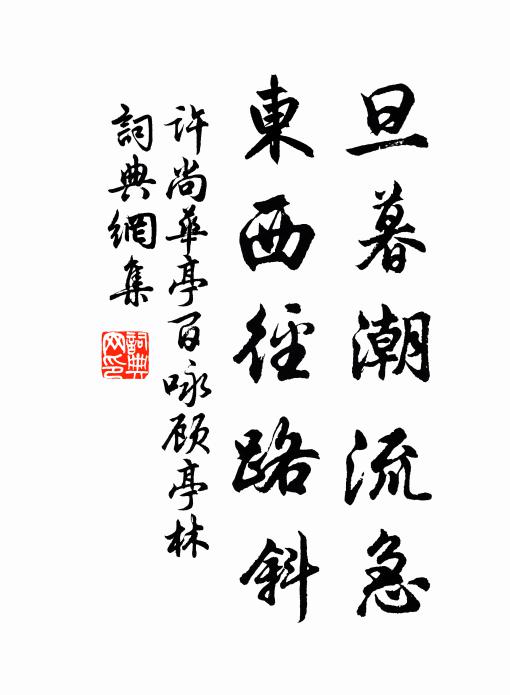 旦暮潮流急
東西徑路斜
许尚華亭百咏顾亭林
詞典網集
詞典网印